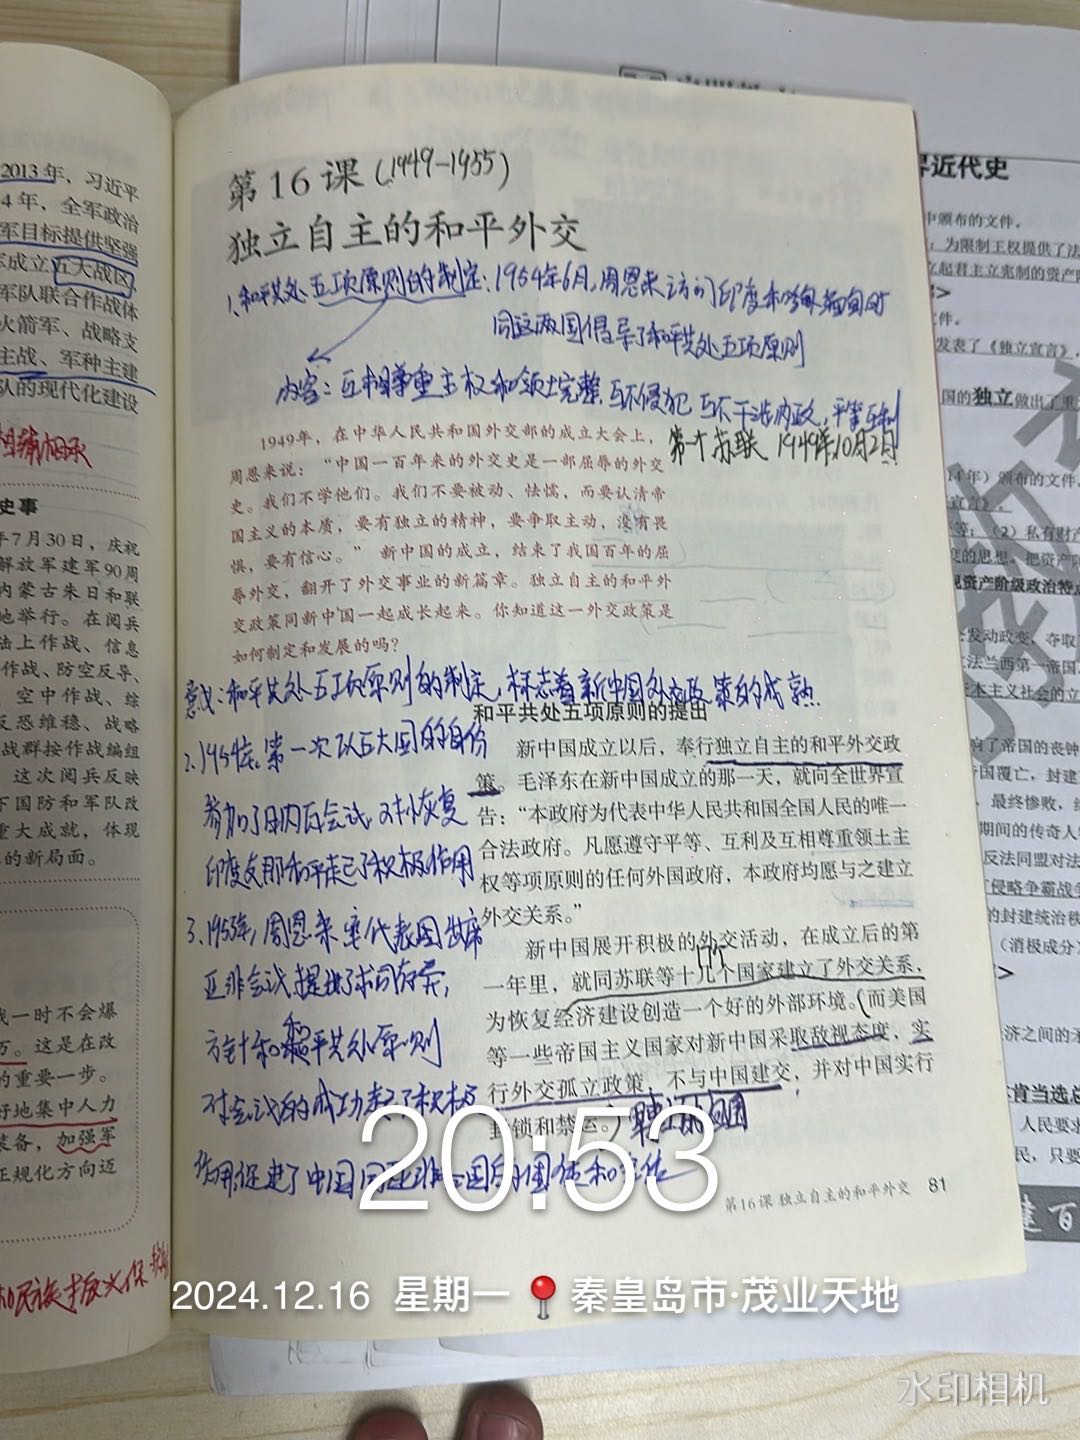 2013年，习近平
4年，全军政治
军目标提供坚强
军成立五大战区，
军队联合作战体
火箭军、战略支
主战、军种主建
队的现代化建设
相辅相承
史事
年7月30日，庆祝
解放军建军90周
内蒙古朱日和联
地举行。在阅兵
陆上作战、信息
作战、防空反导、
空中作战、综
反恐维稳、战略
战群按作战编组
这次阅兵反映
下国防和军队改
重大成就，体现
的新局面。
战一时不会爆
万。这是在改
的重要一步。
好地集中人力
装备，加强军
正规化方向迈
和民族振兴保
第16课（1949-1955）
独立自主的和平外交
1、和平共处五项原则的制定：1954年6月，周恩来访问印度和缅甸时
同这两国倡导了和平共处五项原则
内容：互相尊重主权和领土完整 互不侵犯 互不干涉内政，平等互利
第一个 苏联 1949年10月2日
1949年，在中华人民共和国外交部的成立大会上，
周恩来说：“中国一百年来的外交史是一部屈辱的外交
史。我们不学他们。我们不要被动、怯懦，而要认清帝
国主义的本质，要有独立的精神，要争取主动，没有畏
惧，要有信心。” 新中国的成立，结束了我国百年的屈
辱外交，翻开了外交事业的新篇章。独立自主的和平外
交政策同新中国一起成长起来。你知道这一外交政策是
如何制定和发展的吗？
意义：和平共处五项原则的制定，标志着新中国外交政策的成熟
2、1954年，第一次以五大国的身份
参加了日内瓦会议，对恢复
印度支那和平起了积极作用
3、1955年，周恩来率代表团出席
亚非会议提出了求同存异，
方针和和平共处原则
对会议的成功起了积极
作用，促进了中国同亚非各国的团结和合作
和平共处五项原则的提出
新中国成立以后，奉行独立自主的和平外交政
策。毛泽东在新中国成立的那一天，就向全世界宣
告：“本政府为代表中华人民共和国全国人民的唯一
合法政府。凡愿遵守平等、互利及互相尊重领土主
权等项原则的任何外国政府，本政府均愿与之建立
外交关系。”
新中国展开积极的外交活动，在成立后的第
一年里，就同苏联等十几个国家建立了外交关系，
为恢复经济建设创造一个好的外部环境。（而美国
等一些帝国主义国家对新中国采取敌视态度，实
行外交孤立政策，不与中国建交，并对中国实行
封锁和禁运。）
第16课 独立自主的和平外交 81
界近代史
中颁布的文件。
；为限制王权提供了法
立起君主立宪制的资产阶
件。
发表了《独立宣言》，
国的独立做出了重
14年）颁布的文件。
宣言》。
等；（2）私有财产
的思想，把资产阶
现资产阶级政治特点
发动政变，夺取
法兰西第一帝国
本主义社会的立
响了帝国的丧钟
帝国覆亡，封建
，最终惨败，
期间的传奇人
反法同盟对法
侵略争霸战争
的封建统治秩
（消极成分
济之间的矛
肯当选总
人民要求
民，只要
建百
20:53
2024.12.16 星期一 秦皇岛市·茂业天地
水印相机